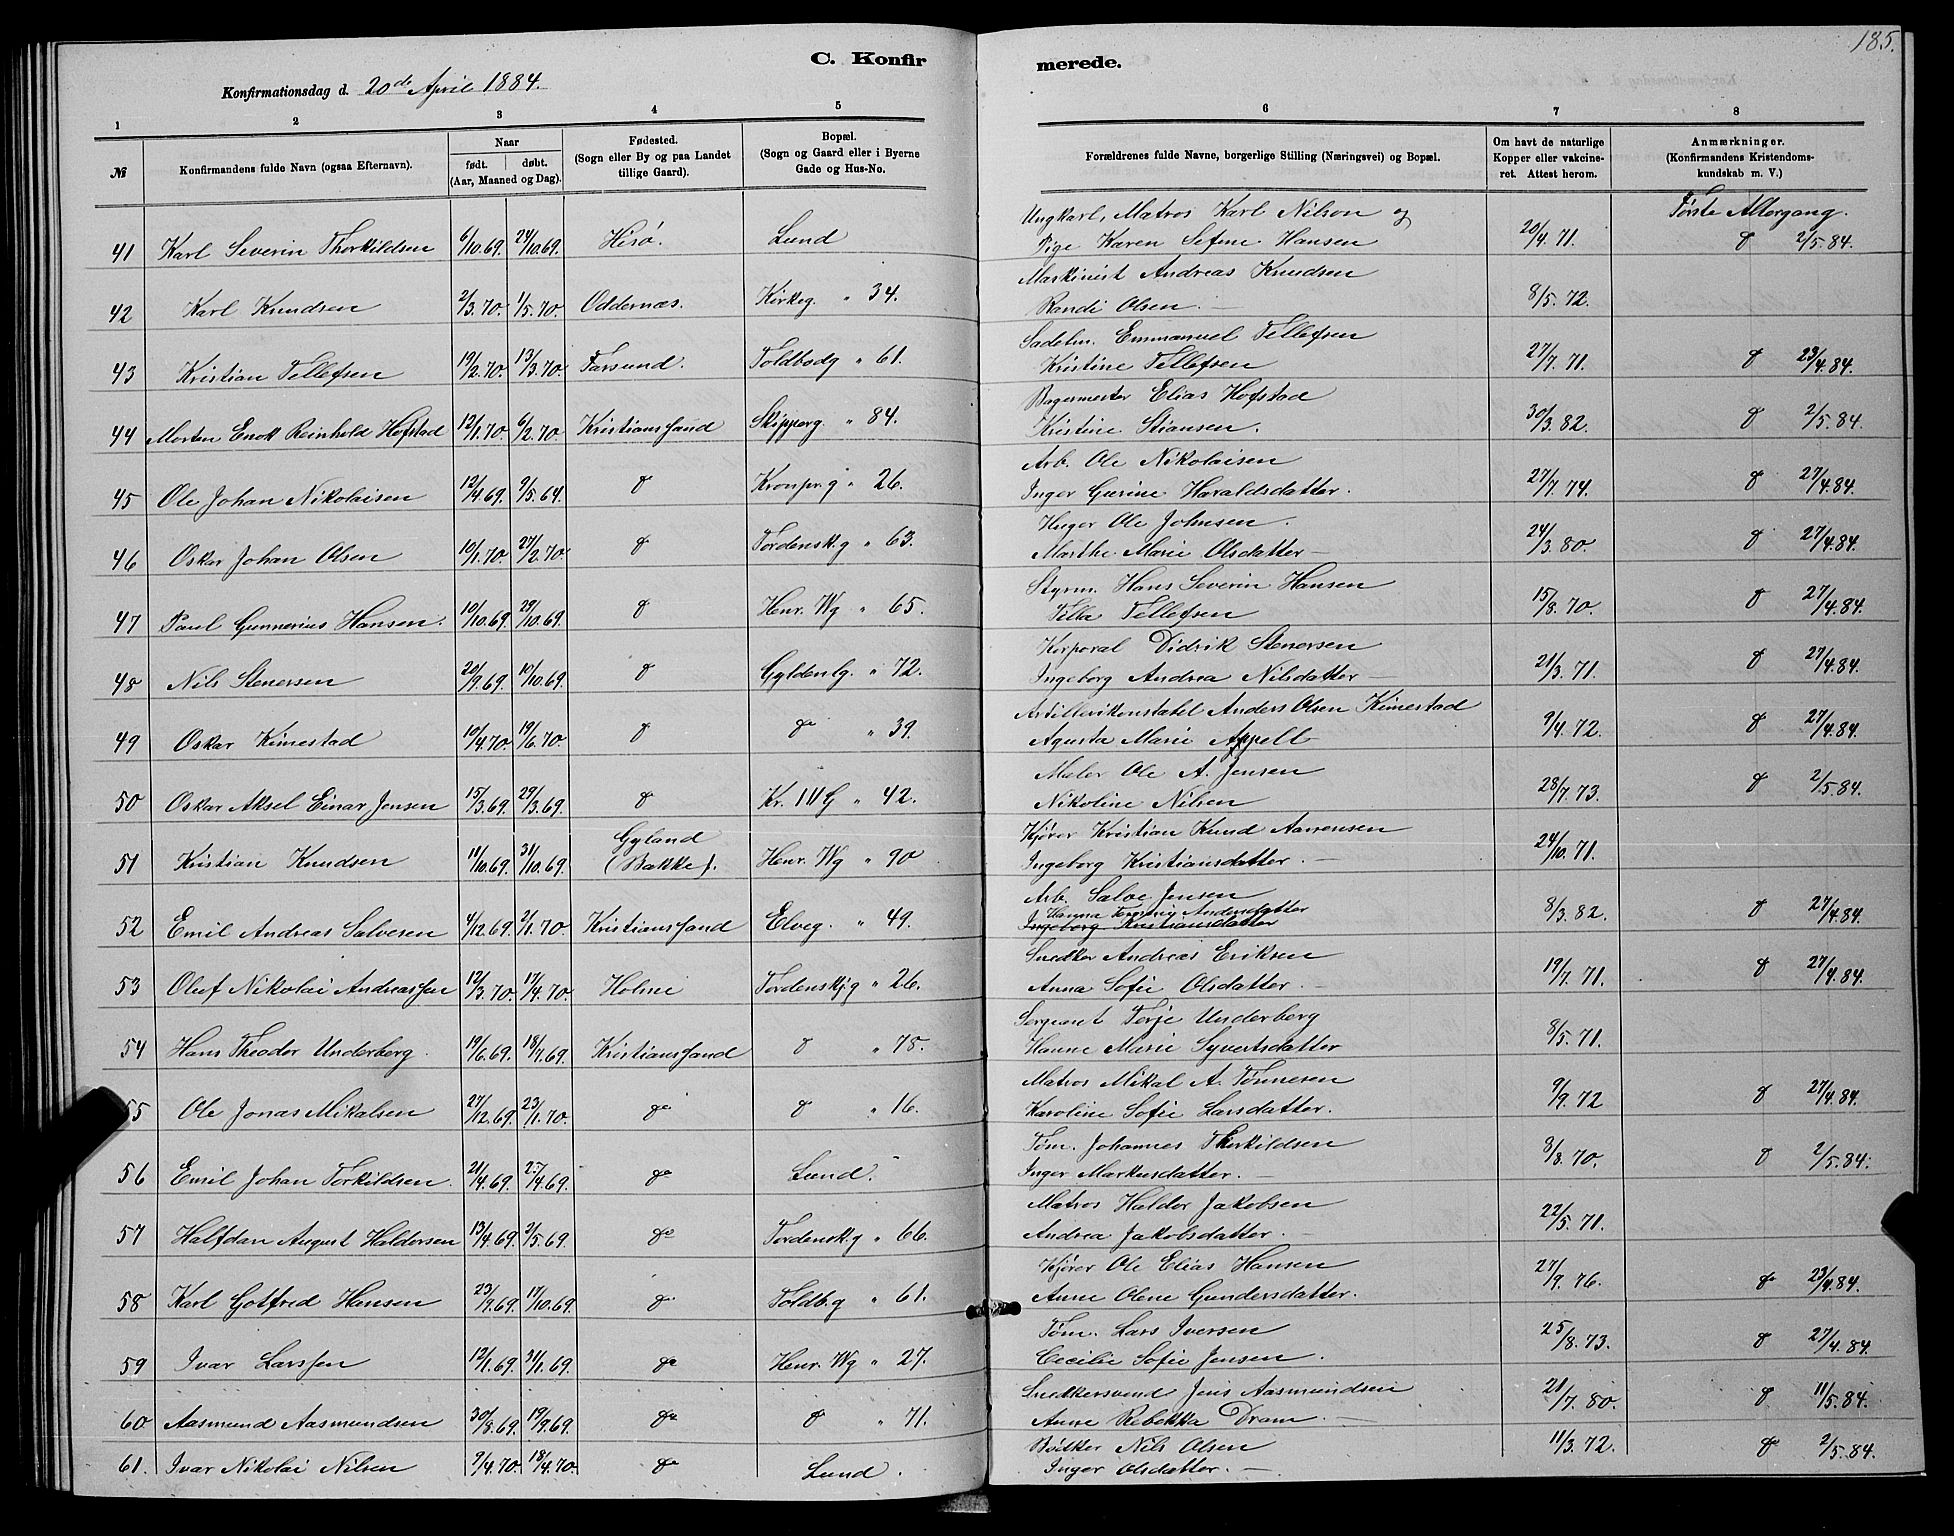 185.
C. Konfirmerede.
Konfirmationsdag d. 20de April 1884.
1 2 3 4 5 6 7 8
№ Konfirmandens fulde Navn (ogsaa Efternavn). Naar født. døbt. (Aar, Maaned og Dag). Fødested. (Sogn eller By og paa Landet tillige Gaard). Bopæl. (Sogn og Gaard eller i Byerne Gade og Hus-No. Forældrenes fulde Navne, borgerlige Stilling (Næringsvei) og Bopæl. Om havt de naturlige Kopper eller vakcineret. Attest herom. Anmærkninger. (Konfirmandens Kristendomskundskab m. V.)
Første Altergang.
Ungkarl, Matros Karl Nilson og
41 Karl Severin Thorkildsen 6/10.69. 24/10.69. Hisø. Lund Pige Karen Sefine Hansen 20/4.71. do 2/5.84.
Maskinist Andreas Knudsen
42 Karl Knudsen 2/3.70. 1/5.70. Oddernæs. Kirkeg. " 34. Randi Olsen. 8/5.72.
Sadelm. Emmanuel Tellefsen
43 Kristian Tellefsen 19/2.70. 13/3.70. Farsund. Toldbodg " 61. Kristine Tellefsen 27/7.71. do 23/4.84.
Bagermester Elias Hofstad
44 Morten Enok Reinhold Hofstad 12/1.70. 6/2.70. Kristianssand Skipperg. " 84. Kristine Stiansen. 30/3.82. do 2/5.84.
Arb. Ole Nikolaisen
45 Ole Johan Nikolaisen 12/4.69. 9/5.64. do Kronpr.g " 26. Inger Gurine Haraldsdatter. 27/7.74. do 27/4.84.
Huger Ole Johnsen.
46 Oskar Johan Olsen 10/1.70. 27/2.70. do Tordensk.g " 63. Marthe Marie Olsdatter 24/3.80. do 27/4.84.
Styrm. Hans Severin Hansen
47 Paul Gunnerius Hansen. 10/10.69. 29/10.69. do Henr. Wg " 65. Tellefsen 15/8.70. do 27/4.84.
Korporal Didrik Stenersen
48 Nils Stenersen 20/9.69. 10/10.69. do Gyldenlg. " 72. Ingeborg Andrea Nilsdatter 21/3.71. do 27/4.84.
Artillerikonstabel Anders Olsen Kimestad
49 Oskar Kimestad 10/4.70. 19/6.70. do do " 39. Agusta Marie Appelt 9/4.72. do 27/4.84.
Maler Ole A. Jensen
50 Oskar Aksel Einar Jensen 15/3.69. 29/3.69. do Kr. IV G " 42. Nikoline Nilsen 28/7.73. do 2/5.84.
Kjører Kristian Knud Aanensen
51 Kristian Knudsen 11/10.69. 31/10.69. Gyland (Bakke). Henr. Wg " 90 Ingeborg Kristiansdatter. 24/10.71.
Arb. Salve Jensen
Hanna Andersdatter
52 Emil Andreas Salvesen 4/12.69. 2/1.70. Kristianssand Elveg. " 49. Ingeborg Kristiansdatter 8/3.82. do 27/4.84.
Snedker Andreas Eriksen
53 Oluf Nikolai Andreassen 12/3.70. 17/4.70. Holme Tordenskj.g " 26. Anna Sofie Olsdatter. 19/7.71. do 27/4.84.
Sergeant Terje Underberg
54 Hans Theodor Underberg. 19/6.69. 18/7.69. Kristianssand do " 78. Hanne Marie Syvertsdatter 8/5.71.
Matros Mikal A. Tønnesen
55 Ole Jonas Mikalsen 27/12.69. 23/1.70. do do " 16. Karoline Sofie Larsdatter. 9/9.72 do 27/4.84.
Tøm. Johannes Thorkildsen
56 Emil Johan Torkildsen. 21/4.69. 25/4.69. do Lund. Inger Markusdatter. 8/8.70. do 2/5.84.
Matros Haldor Jakobsen
57 Halfdan August Haldorsen 13/4.69. 2/5.69. do Tordensk.g " 66. Andrea Jakobsdatter. 22/5.71.
Kjører Ole Elias Hansen
58 Karl Gotfred Hansen 23/9.69. 17/10.69. do Toldb.g " 61. Anne Olene Gundersdatter. 27/9.76. do 23/4.84.
Tøm. Lars Iversen
59 Ivar Larssen 12/1.69. 31/1.69. do Henr. Wg " 27. Cecilie Sofie Jensen. 25/8.73. do 27/4.84.
Snedkersvend Jens Aasmundsen
60 Aasmund Aasmundsen 30/8.69. 19/9.69. do do " 71. Anne Rebekka Dram. 21/7.80. do 11/5.84.
Bødker Nils Olsen
61. Ivar Nikolai Nilsen 9/4.70. 18/4.70. do Lund. Inger Olsdatter. 11/3.72. do 2/5.84.